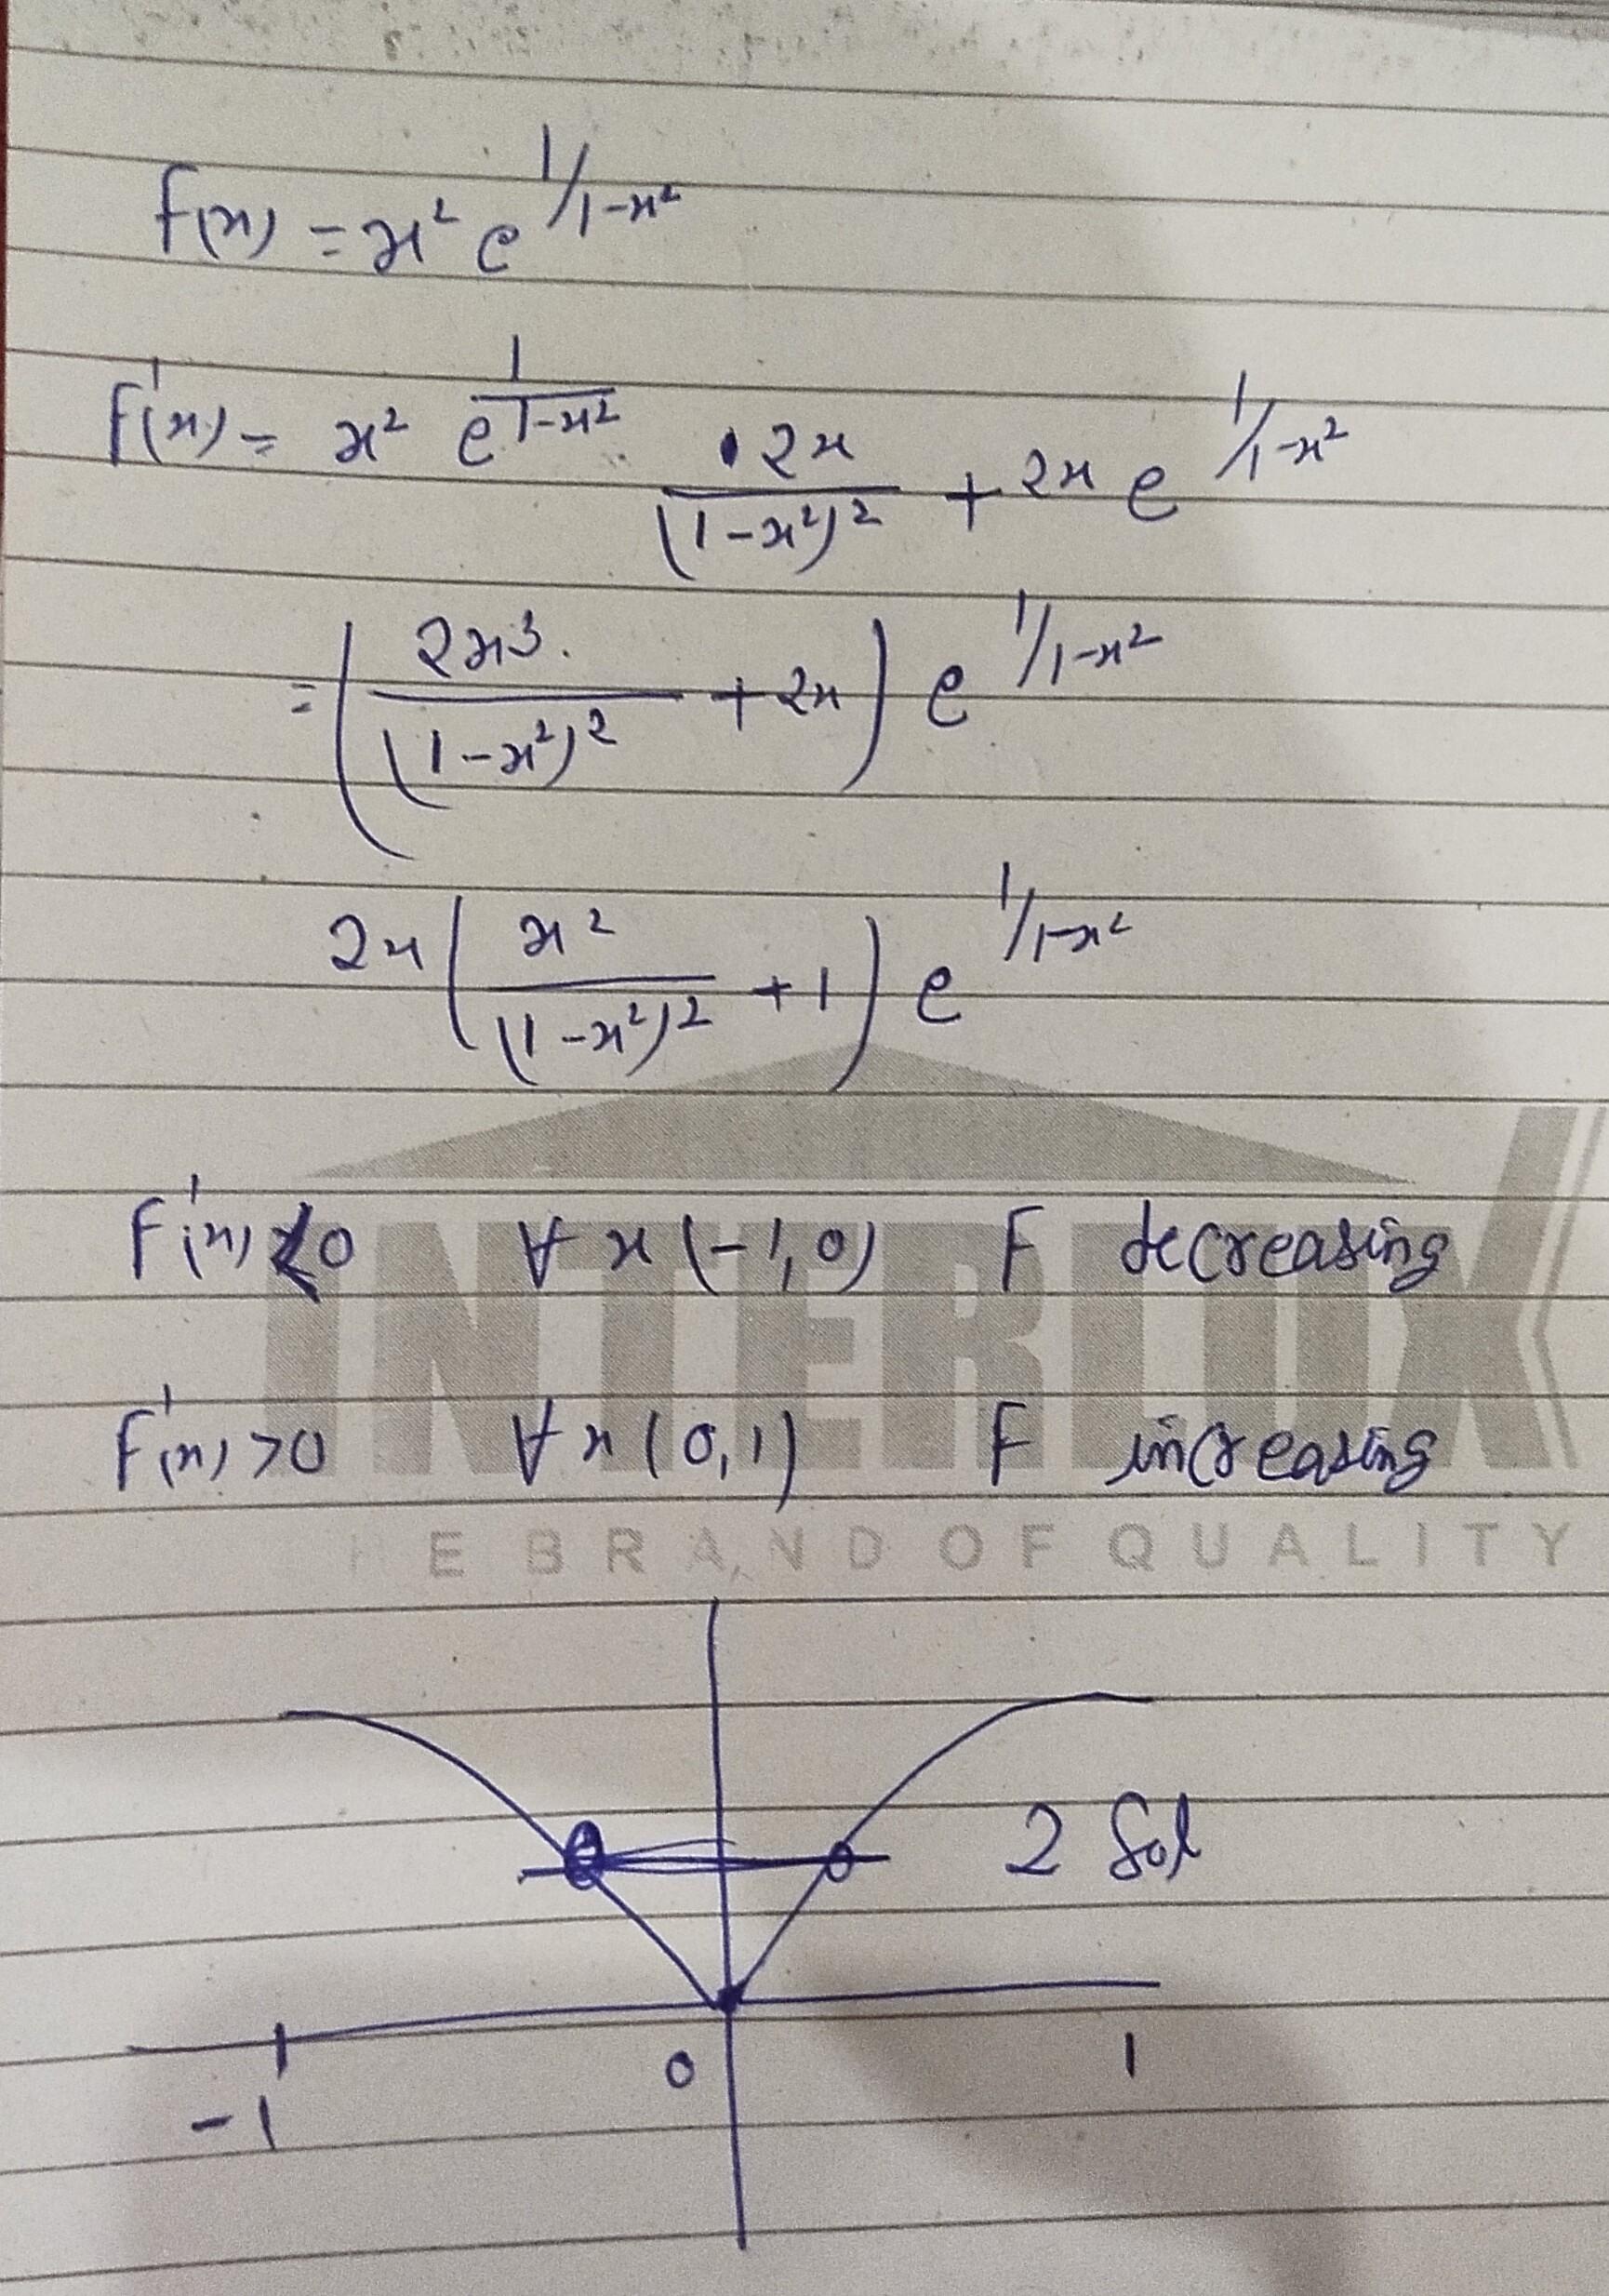 f(x) = x² e^{1/1-x²}
f'(x) = x² e^{\frac{1}{1-x²}} · \frac{2x}{(1-x²)²} + 2x e^{1/1-x²}
= ( \frac{2x³}{(1-x²)²} + 2x ) e^{1/1-x²}
2x ( \frac{x²}{(1-x²)²} + 1 ) e^{1/1-x²}
f'(x) < 0 ∀ x (-1, 0) F decreasing
f'(x) > 0 ∀ x (0, 1) F increasing
INTERLUX
HE BRAND OF QUALITY
2 Sol
-1 0 1